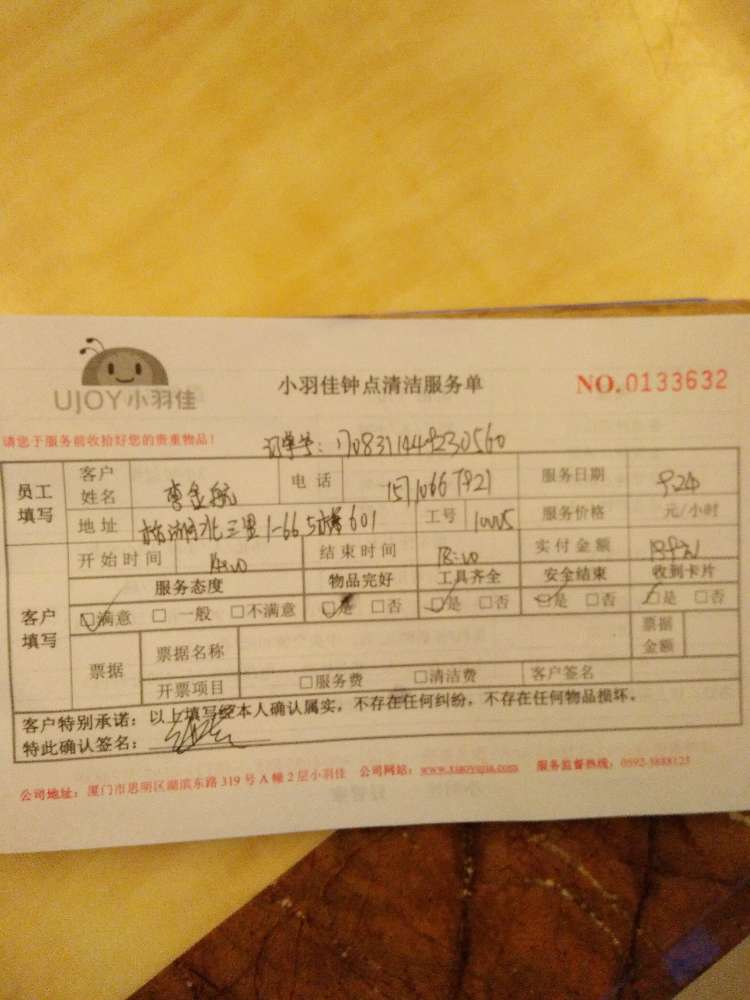 UJOY小羽佳
小羽佳钟点清洁服务单
NO.0133632
请您于服务前收拾好您的贵重物品!
订单号:
员工填写 客户姓名 李金航 电话 服务日期 9.24
地址 北三里1-66 601 工号 服务价格 元/小时
客户填写 开始时间 14:00 结束时间 18:00 实付金额
服务态度 物品完好 工具齐全 安全结束 收到卡片
☑满意 □一般 □不满意 ☑是 □否 ☑是 □否 ☑是 □否 ☑是 □否
票据 票据名称 票据金额
开票项目 □服务费 □清洁费 客户签名
客户特别承诺:以上填写经本人确认属实,不存在任何纠纷,不存在任何物品损坏。
特此确认签名:
公司地址:厦门市思明区湖滨东路319号A幢2层小羽佳 公司网站:www.xiaoyujia.com 服务监督热线: